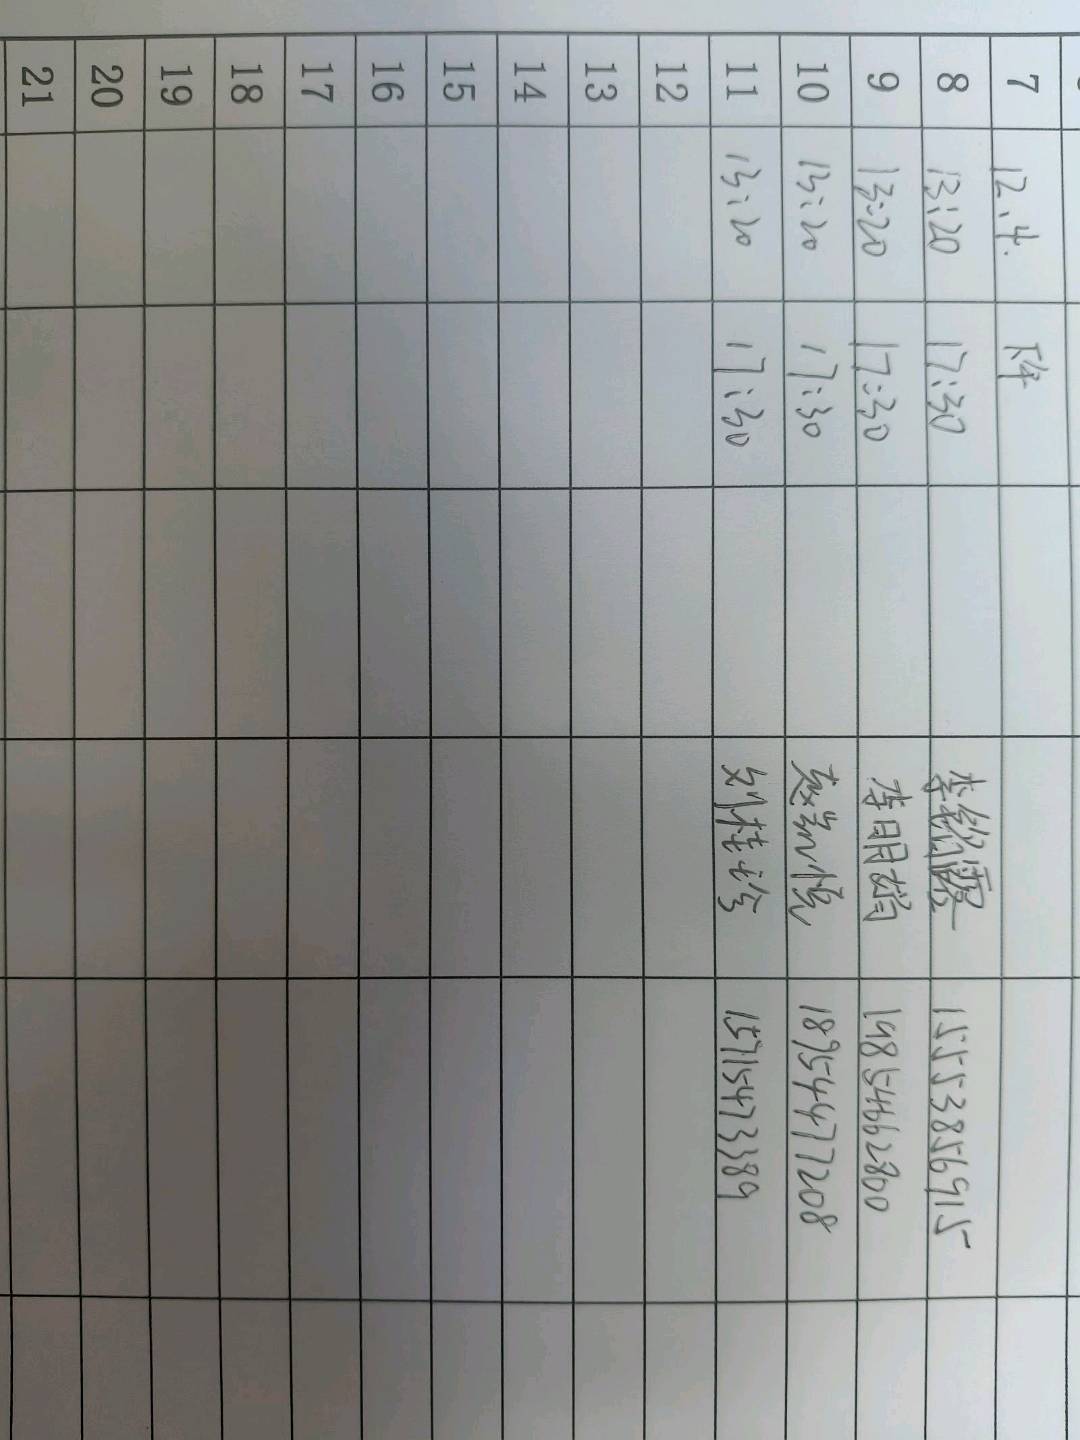 7 12.4. 下午
8 13:20 17:30 李 露 15553856915
9 13:20 17:30 李明娟 19854662800
10 13:20 17:30 赵 悦 18954477208
11 13:20 17:30 刘桂珍 15715473389
12
13
14
15
16
17
18
19
20
21